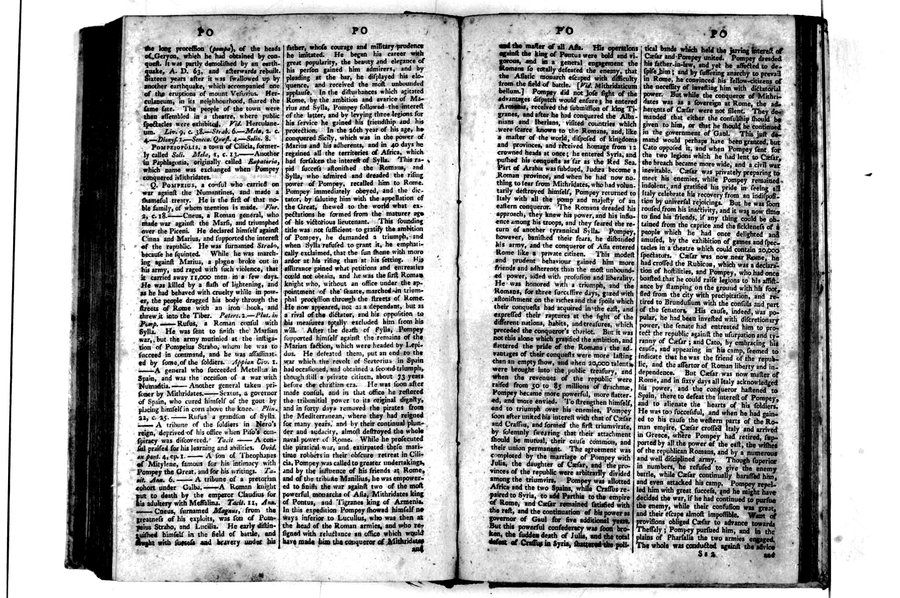 PO
PO
the long procession (pompa), of the heads
of Geryon, which he had obtained by con-
quest. It was partly demolished by an earth-
quake, A. D. 63, and afterwards rebuilt.
Sixteen years after it was swallowed up by
another earthquake, which accompanied one
of the eruptions of mount Vesuvius. Her-
culaneum, in its neighbourhood, shared the
same fate. The people of the town were
then assembled in a theatre, where public
spectacles were exhibiting. Vid. Herculane-
um. Liv. 9, c. 38.—Strab. 6.—Mela, 2, c.
4.—Dionys. 1.—Seneca. Quæst. 4.—Solin. 8.
POMPEIOPOLIS, a town of Cilicia, former-
ly called Soli. Mela, 1, c. 13.—Another
in Paphlagonia, originally called Eupatoria,
which name was exchanged when Pompey
conquered Mithridates.
Q. POMPEIUS, a consul who carried on
war against the Numantines, and made a
shameful treaty. He is the first of that no-
ble family, of whom mention is made. Flor.
2, c. 18.—Cneus, a Roman general, who
made war against the Marsi, and triumphed
over the Piceni. He declared himself against
Cinna and Marius, and supported the interest
of the republic. He was surnamed Strabo,
because he squinted. While he was march-
ing against Marius, a plague broke out in
his army, and raged with such violence, that
it carried away 11,000 men in a few days.
He was killed by a flash of lightening, and
as he had behaved with cruelty while in pow-
er, the people dragged his body through the
streets of Rome with an iron hook, and
threw it into the Tiber. Paterc. 2.—Plut. in
Pomp.—Rufus, a Roman consul with
Sylla. He was sent to finish the Marsian
war, but the army mutinied at the instiga-
tion of Pompeius Strabo, whom he was to
succeed in command, and he was assassinat-
ed by some of the soldiers. Appian Civ. 1.
—A general who succeeded Metellus in
Spain, and was the occasion of a war with
Numantia.—Another general taken pri-
soner by Mithridates.—Sextus, a governor
of Spain, who cured himself of the gout by
placing himself in corn above the knee. Plin.
22, c. 25.—Rufus a grandson of Sylla.
—A tribune of the soldiers in Nero's
reign, deprived of his office when Piso's con-
spiracy was discovered. Tacit—A con-
sul praised for his learning and abilities. Ovid.
ex pont. 4, ep. 1.—A son of Theophanes
of Mitylene, famous for his intimacy with
Pompey the Great, and for his writings. Ta-
cit. Ann. 6.—A tribune of a pretorian
cohort under Galba.—A Roman knight
put to death by the emperor Claudius for
his adultery with Messalina. Tacit. 11. Ann.
—Cneus, surnamed Magnus, from the
greatness of his exploits, was son of Pom-
peius Strabo, and Lucilia. He early distin-
guished himself in the field of battle, and
fought with success and bravery under his
father, whose courage and military prudence
he imitated. He began his career with
great popularity, the beauty and elegance of
his person gained him admirers, and by
pleading at the bar, he displayed his elo-
quence, and received the most unbounded
applause. In the disturbances which agitated
Rome, by the ambition and avarice of Ma-
rius and Sylla, Pompey followed the interest
of the latter, and by levying three legions for
his service he gained his friendship and his
protection. In the 26th year of his age, he
conquered Sicily, which was in the power of
Marius and his adherents, and in 40 days he
regained all the territories of Africa, which
had forsaken the interest of Sylla. This ra-
pid success astonished the Romans, and
Sylla, who admired and dreaded the rising
power of Pompey, recalled him to Rome.
Pompey immediately obeyed, and the dic-
tator, by saluting him with the appellation of
the Great, shewed to the world what ex-
pectations he formed from the maturer age
of his victorious lieutenant. This sounding
title was not sufficient to gratify the ambition
of Pompey, he demanded a triumph, and
when Sylla refused to grant it, he emphati-
cally exclaimed, that the sun shone with more
ardor at his rising than at his setting. His
assurance gained what petitions and entreaties
could not obtain, and he was the first Roman
knight who, without an office under the ap-
pointment of the senate, marched in trium-
phal procession through the streets of Rome.
He now appeared, not as a dependent, but as
a rival of the dictator, and his opposition to
his measures totally excluded him from his
will. After the death of Sylla, Pompey
supported himself against the remains of the
Marian faction, which were headed by Lepi-
dus. He defeated them, put an end to the
war which the revolt of Sertorius in Spain
had occasioned, and obtained a second triumph,
though still a private citizen, about 73 years
before the christian era. He was soon after
made consul, and in that office he restored
the tribunitial power to its original dignity,
and in forty days removed the pirates from
the Mediterranean, where they had reigned
for many years, and by their continual plun-
der and audacity, almost destroyed the whole
naval power of Rome. While he prosecuted
the piratical war, and extirpated these mari-
time robbers in their obscure retreat in Cili-
cia, Pompey was called to greater undertakings,
and by the influence of his friends at Rome,
and of the tribune Manilius, he was empower-
ed to finish the war against two of the most
powerful monarchs of Asia, Mithridates king
of Pontus, and Tigranes king of Armenia.
In this expedition Pompey showed himself no
ways inferior to Lucullus, who was then at
the head of the Roman armies, and who re-
signed with reluctance an office which would
have made him the conqueror of Mithridates
and
PO
PO
and the master of all Asia. His operations
against the king of Pontus were bold and vi-
gorous, and in a general engagement the
Romans so totally defeated the enemy, that
the Asiatic monarch escaped with difficulty
from the field of battle. [Vid. Mithridaticum
bellum.] Pompey did not lose sight of the
advantages dispatch would ensure, he entered
Armenia, received the submission of king Ti-
granes, and after he had conquered the Alba-
nians and Iberians, visited countries which
were scarce known to the Romans, and, like
a master of the world, disposed of kingdoms
and provinces, and received homage from 12
crowned heads at once; he entered Syria, and
pushed his conquests as far as the Red Sea.
Part of Arabia was subdued, Judæa became a
Roman province, and when he had now no-
thing to fear from Mithridates, who had volun-
tarily destroyed himself, Pompey returned to
Italy with all the pomp and majesty of an
eastern conqueror. The Romans dreaded his
approach, they knew his power, and his influ-
ence among his troops, and they feared the re-
turn of another tyrannical Sylla. Pompey,
however, banished their fears, he disbanded
his army, and the conqueror of Asia entered
Rome like a private citizen. This modest
and prudent behaviour gained him more
friends and adherents than the most unbound-
ed power, aided with profusion and liberality.
He was honored with a triumph, and the
Romans, for three successive days, gazed with
astonishment on the riches and the spoils which
their conquests had acquired in the east, and
expressed their raptures at the sight of the
different nations, habits, and treasures, which
preceded the conqueror's chariot. But it was
not this alone which gratified the ambition, and
flattered the pride of the Romans; the ad-
vantages of their conquests were more lasting
than an empty show, and when 20,000 talents
were brought into the public treasury, and
when the revenues of the republic were
raised from 50 to 85 millions of drachmæ,
Pompey became more powerful, more flatter-
ed, and more envied. To strengthen himself,
and to triumph over his enemies, Pompey
soon after united his interest with that of Cæsar
and Crassus, and formed the first triumvirate,
by solemnly swearing that their attachment
should be mutual, their cause common, and
their union permanent. The agreement was
completed by the marriage of Pompey with
Julia, the daughter of Cæsar, and the pro-
vinces of the republic were arbitrarily divided
among the triumvirs. Pompey was allotted
Africa and the two Spains, while Crassus re-
paired to Syria, to add Parthia to the empire
of Rome, and Cæsar remained satisfied with
the rest, and the continuation of his power as
governor of Gaul for five additional years.
But this powerful confederacy was soon bro-
ken, the sudden death of Julia, and the total
defeat of Crassus in Syria, shattered the poli-
tical bands which held the jarring interest of
Cæsar and Pompey united. Pompey dreaded
his father-in-law, and yet he affected to de-
spise him; and by suffering anarchy to prevail
in Rome, he convinced his fellow-citizens of
the necessity of investing him with dictatorial
power. But while the conqueror of Mithri-
dates was as a sovereign at Rome, the ad-
herents of Cæsar were not silent. They de-
manded that either the consulship should be
given to him, or that he should be continued
in the government of Gaul. This just de-
mand would perhaps have been granted, but
Cato opposed it, and when Pompey sent for
the two legions which he had lent to Cæsar,
the breach became more wide, and a civil war
inevitable. Cæsar was privately preparing to
meet his enemies, while Pompey remained
indolent, and gratified his pride in seeing all
Italy celebrate his recovery from an indisposi-
tion by universal rejoicings. But he was soon
roused from his inactivity, and it was now time
to find his friends, if any thing could be ob-
tained from the caprice and the fickleness of a
people which he had once delighted and
amused, by the exhibition of games and spec-
tacles in a theatre which could contain 20,000
spectators. Cæsar was now near Rome, he
had crossed the Rubicon, which was a declara-
tion of hostilities, and Pompey, who had once
boasted that he could raise legions to his assist-
ance by stamping on the ground with his foot,
fled from the city with precipitation, and re-
tired to Brundusium with the consuls and part
of the senators. His cause, indeed, was po-
pular, he had been invested with discretionary
power, the senate had entreated him to pro-
tect the republic against the usurpation and ty-
ranny of Cæsar; and Cato, by embracing his
cause, and appearing in his camp, seemed to
indicate that he was the friend of the repub-
lic, and the assertor of Roman liberty and in-
dependence. But Cæsar was now master of
Rome, and in sixty days all Italy acknowledged
his power, and the conqueror hastened to
Spain, there to defeat the interest of Pompey,
and to alienate the hearts of his soldiers.
He was too successful, and when he had gain-
ed to his cause the western parts of the Ro-
man empire, Cæsar crossed Italy and arrived
in Greece, where Pompey had retired, sup-
ported by all the power of the east, the wishes
of the republican Romans, and by a numerous
and well disciplined army. Though superior
in numbers, he refused to give the enemy
battle, while Cæsar continually harassed him,
and even attacked his camp. Pompey repel-
led him with great success, and he might have
decided the war, if he had continued to pursue
the enemy, while their confusion was great,
and their escape almost impossible. Want of
provisions obliged Cæsar to advance towards
Thessaly; Pompey pursued him, and in the
plains of Pharsalia the two armies engaged.
The whole was conducted against the advice
S s 2
and